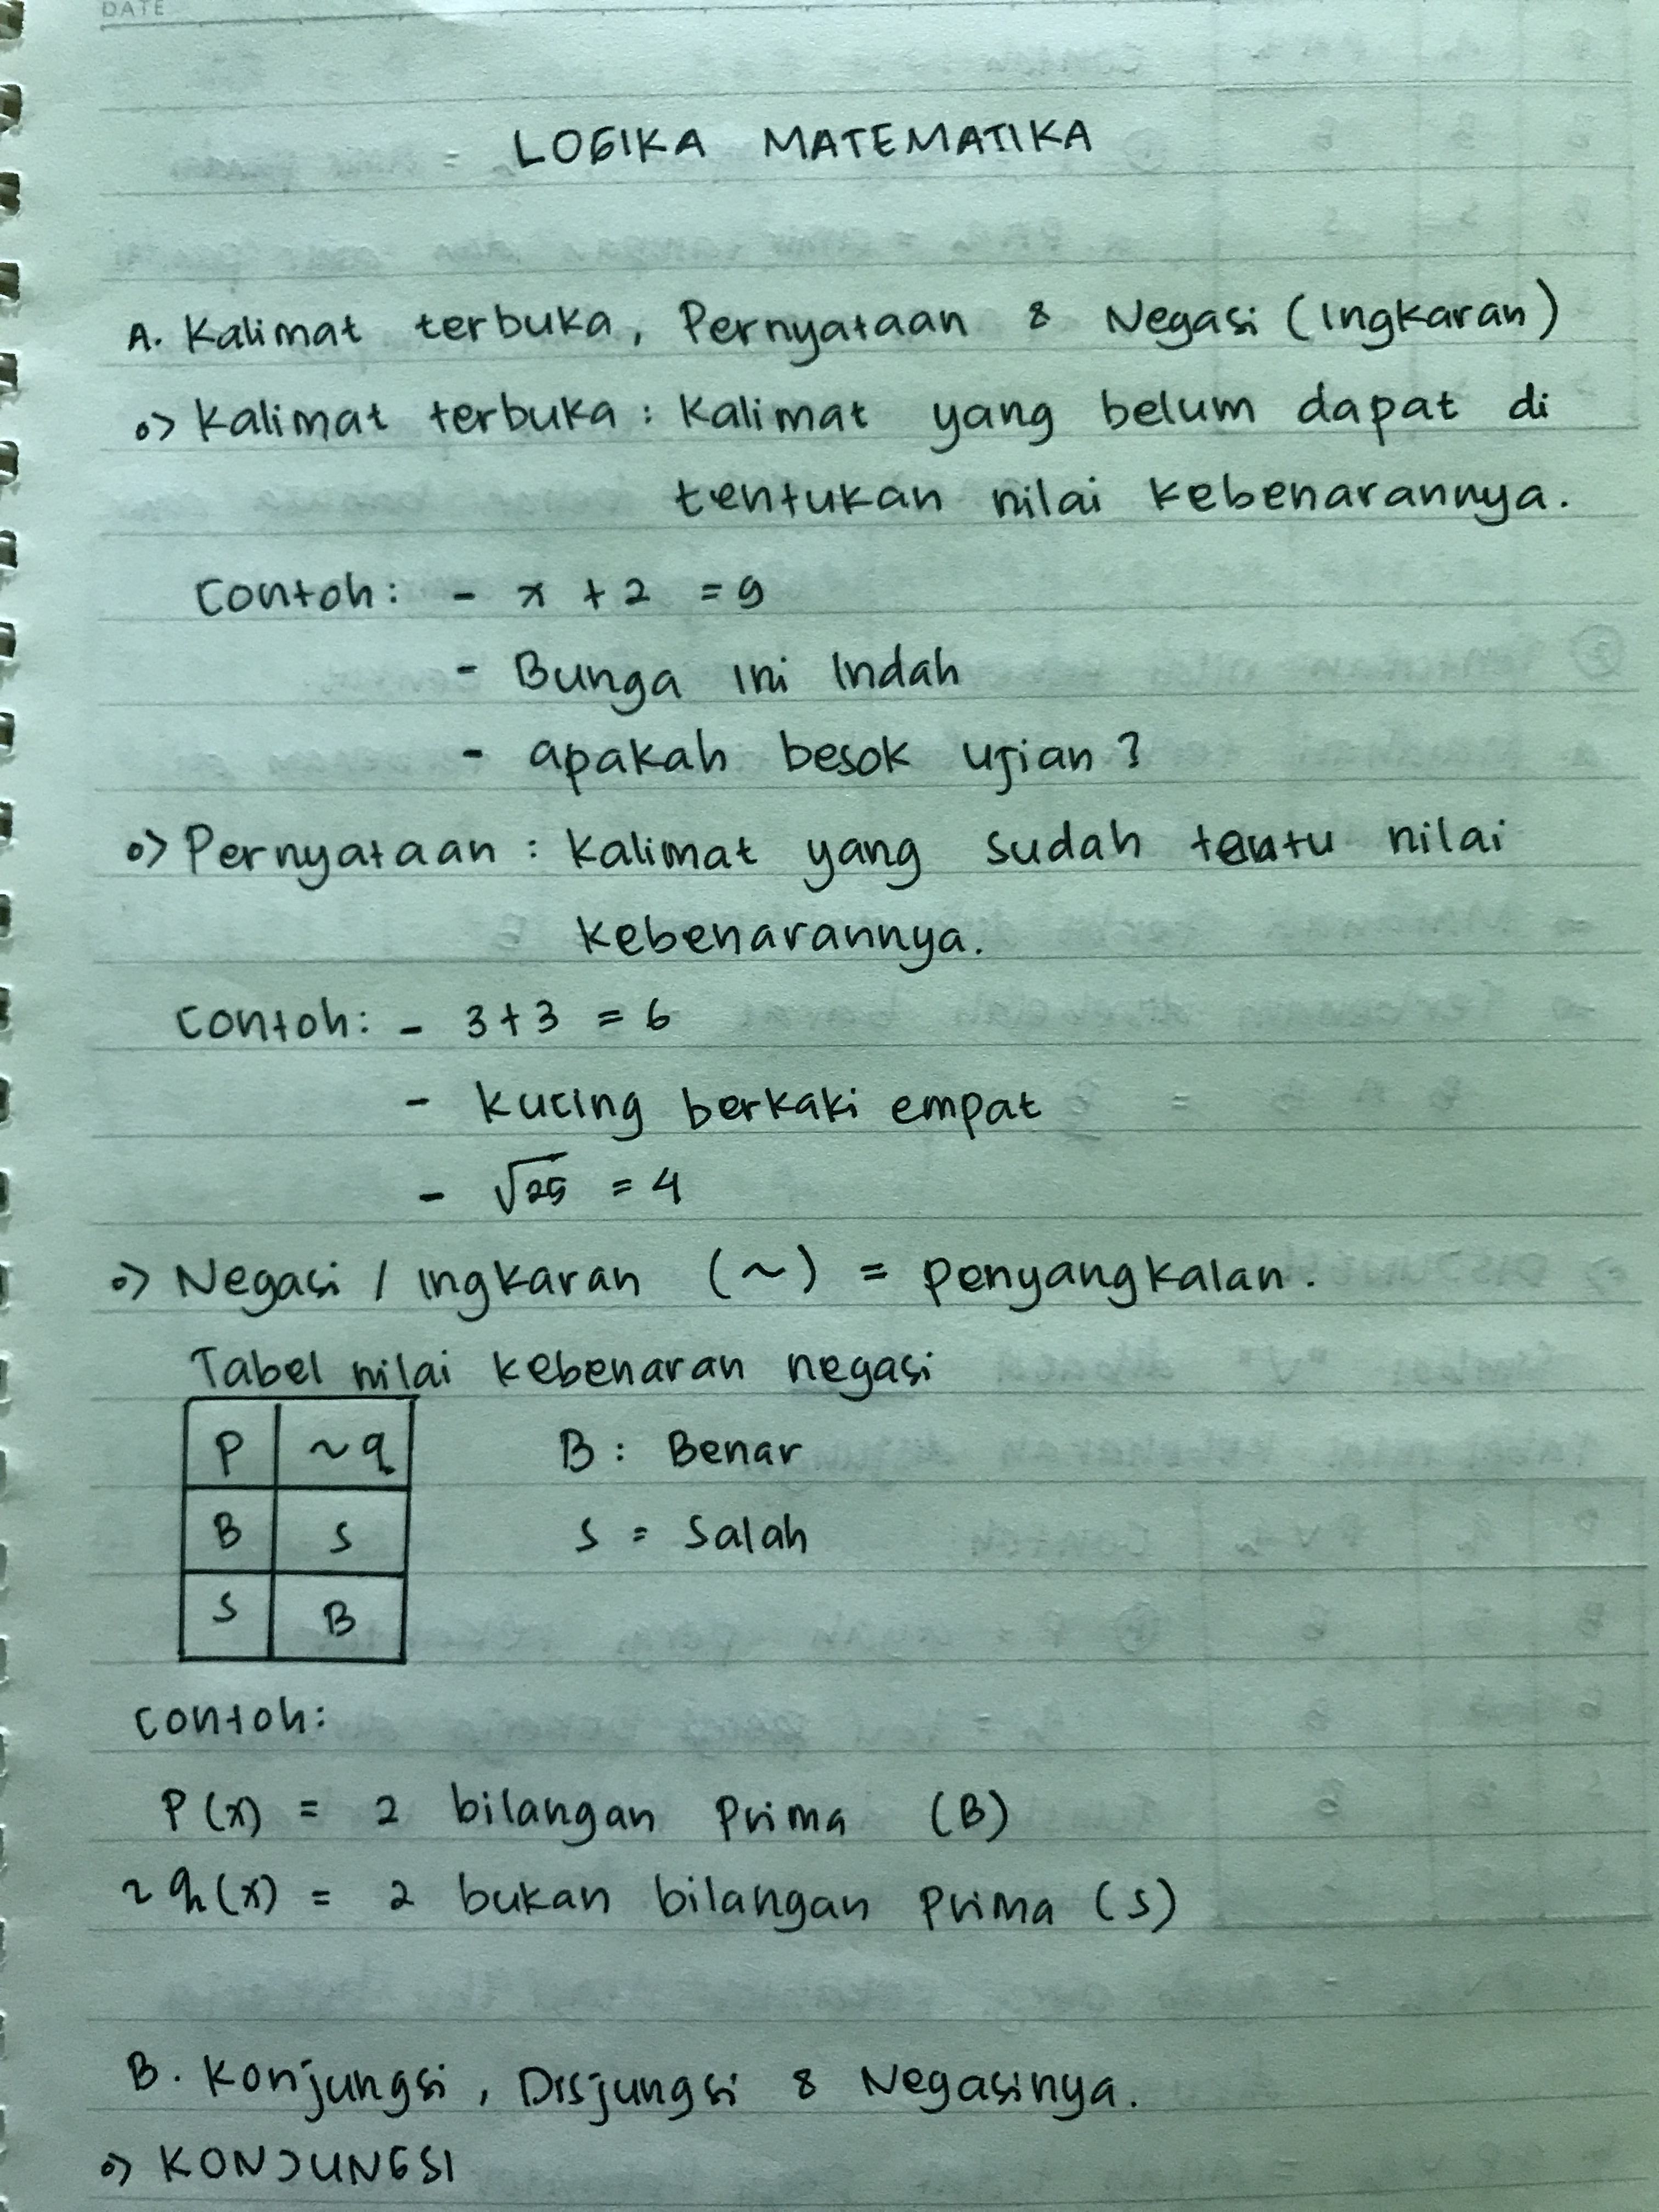 DATE
LOGIKA MATEMATIKA
A. Kalimat terbuka, Pernyataan & Negasi (Ingkaran)
o> Kalimat terbuka : Kalimat yang belum dapat di
tentukan nilai kebenarannya.
Contoh: - x + 2 = 9
- Bunga ini Indah
- apakah besok ujian ?
o> Pernyataan : Kalimat yang sudah tentu nilai
kebenarannya.
Contoh: - 3+3 = 6
- kucing berkaki empat
- √25 = 4
o> Negasi / Ingkaran (~) = penyangkalan.
Tabel nilai kebenaran negasi
P ~q B : Benar
B S S = Salah
S B
Contoh:
P(x) = 2 bilangan Prima (B)
~q(x) = 2 bukan bilangan Prima (S)
B. Konjungsi, Disjungsi & Negasinya.
o> KONJUNGSI